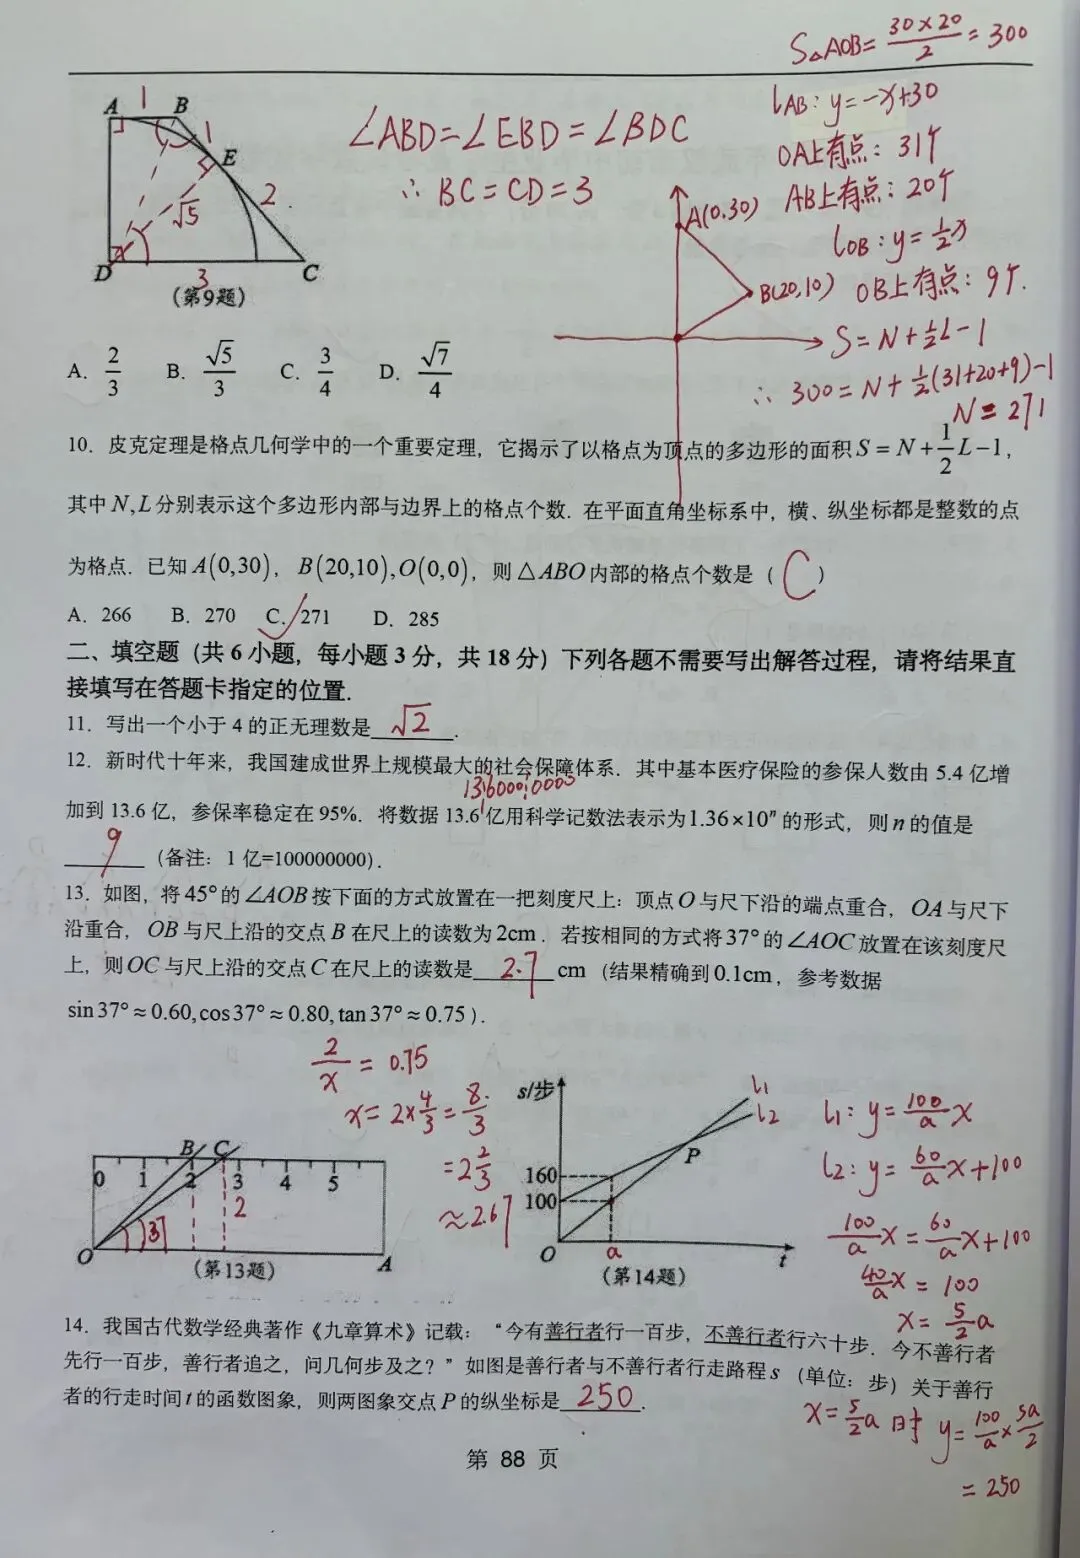 S△AOB=30×20/2=300
lAB: y=-x+30
OA上有点: 31个
AB上有点: 20个
lOB: y=½x
OB上有点: 9个.
S=N+½L-1
∴ 300=N+½(31+20+9)-1
N=271
A 1 B
1
E
2
√5
D 3 C
(第9题)
∠ABD=∠EBD=∠BDC
∴ BC=CD=3
A(0.30)
B(20,10)
A. 2/3 B. √5/3 C. 3/4 D. √7/4
10. 皮克定理是格点几何学中的一个重要定理，它揭示了以格点为顶点的多边形的面积S=N+½L-1，
其中N,L分别表示这个多边形内部与边界上的格点个数. 在平面直角坐标系中，横、纵坐标都是整数的点
为格点. 已知A(0,30)，B(20,10),O(0,0)，则△ABO内部的格点个数是（ C ）
A. 266 B. 270 C. 271 D. 285
二、填空题（共6小题，每小题3分，共18分）下列各题不需要写出解答过程，请将结果直
接填写在答题卡指定的位置.
11. 写出一个小于4的正无理数是 √2 .
12. 新时代十年来，我国建成世界上规模最大的社会保障体系. 其中基本医疗保险的参保人数由5.4亿增
1360000000
加到13.6亿，参保率稳定在95%. 将数据13.6亿用科学记数法表示为1.36×10ⁿ的形式，则n的值是
9 （备注：1亿=100000000）.
13. 如图，将45°的∠AOB按下面的方式放置在一把刻度尺上：顶点O与尺下沿的端点重合，OA与尺下
沿重合，OB与尺上沿的交点B在尺上的读数为2cm. 若按相同的方式将37°的∠AOC放置在该刻度尺
上，则OC与尺上沿的交点C在尺上的读数是 2.7 cm（结果精确到0.1cm，参考数据
sin37°≈0.60,cos37°≈0.80,tan37°≈0.75）.
2/x=0.75
x=2×4/3=8/3
=2 2/3
≈2.67
B C
0 1 2 3 4 5
2
37
O A
(第13题)
s/步
l1
l2
P
160
100
O a t
(第14题)
l1: y=100/a x
l2: y=60/a x+100
100/a x=60/a x+100
40/a x=100
x=5/2 a
14. 我国古代数学经典著作《九章算术》记载：“今有善行者行一百步，不善行者行六十步. 今不善行者
先行一百步，善行者追之，问几何步及之？”如图是善行者与不善行者行走路程s（单位：步）关于善行
者的行走时间t的函数图象，则两图象交点P的纵坐标是 250 .
x=5/2 a 时 y=100/a×5a/2
=250
第 88 页